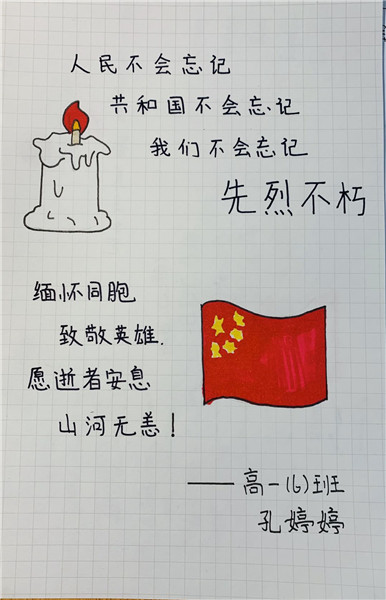 人民不会忘记
共和国不会忘记
我们不会忘记
先烈不朽
缅怀同胞
致敬英雄.
愿逝者安息
山河无恙！
——高一(6)班
孔婷婷